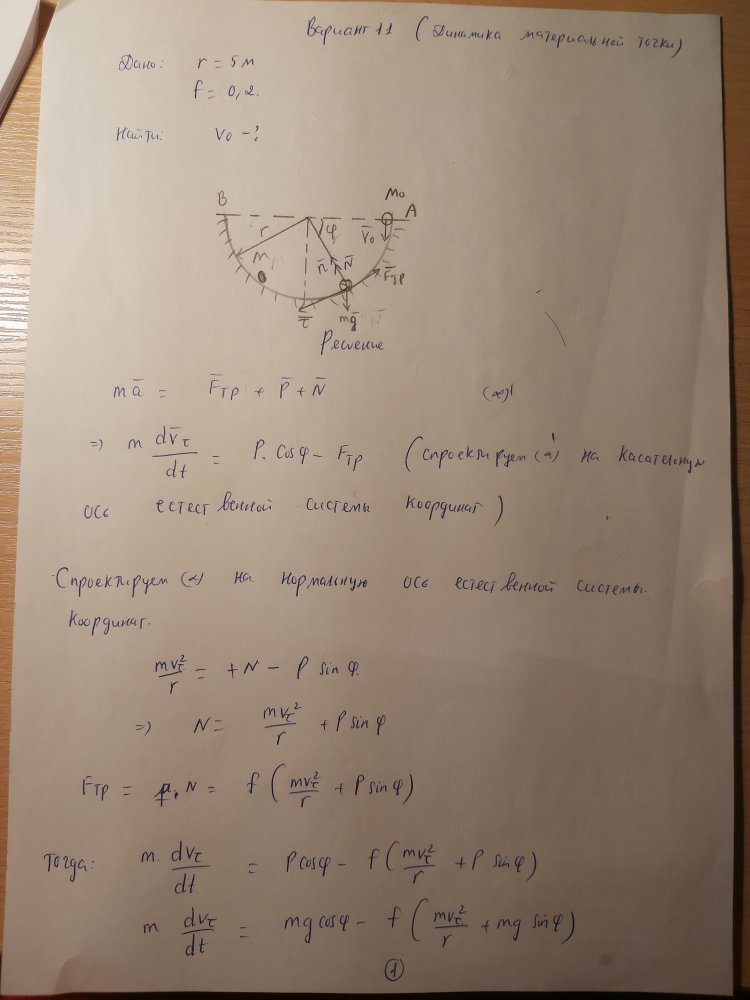 Вариант 11 (Динамика материальной точки)
Дано: r = 5 м
f = 0,2.
Найти: v₀ - ?
B M₀ A
r φ v̄₀
M n̄ N̄ F̄тр
τ̄ mḡ
Решение
mā = F̄тр + P̄ + N̄ (*)
=> m dv̄τ/dt = P. Cosφ - Fтр (спроектируем (*) на касательную
ось естественной системы координат)
Спроектируем (*) на нормальную ось естественной системы.
координат.
mvτ²/r = +N - P sin φ.
=> N = mvτ²/r + P sin φ
Fтр = f. N = f (mvτ²/r + P sin φ)
Тогда: m. dvτ/dt = P cosφ - f (mvτ²/r + P sin φ)
m dvτ/dt = mg cosφ - f (mvτ²/r + mg sin φ)
1